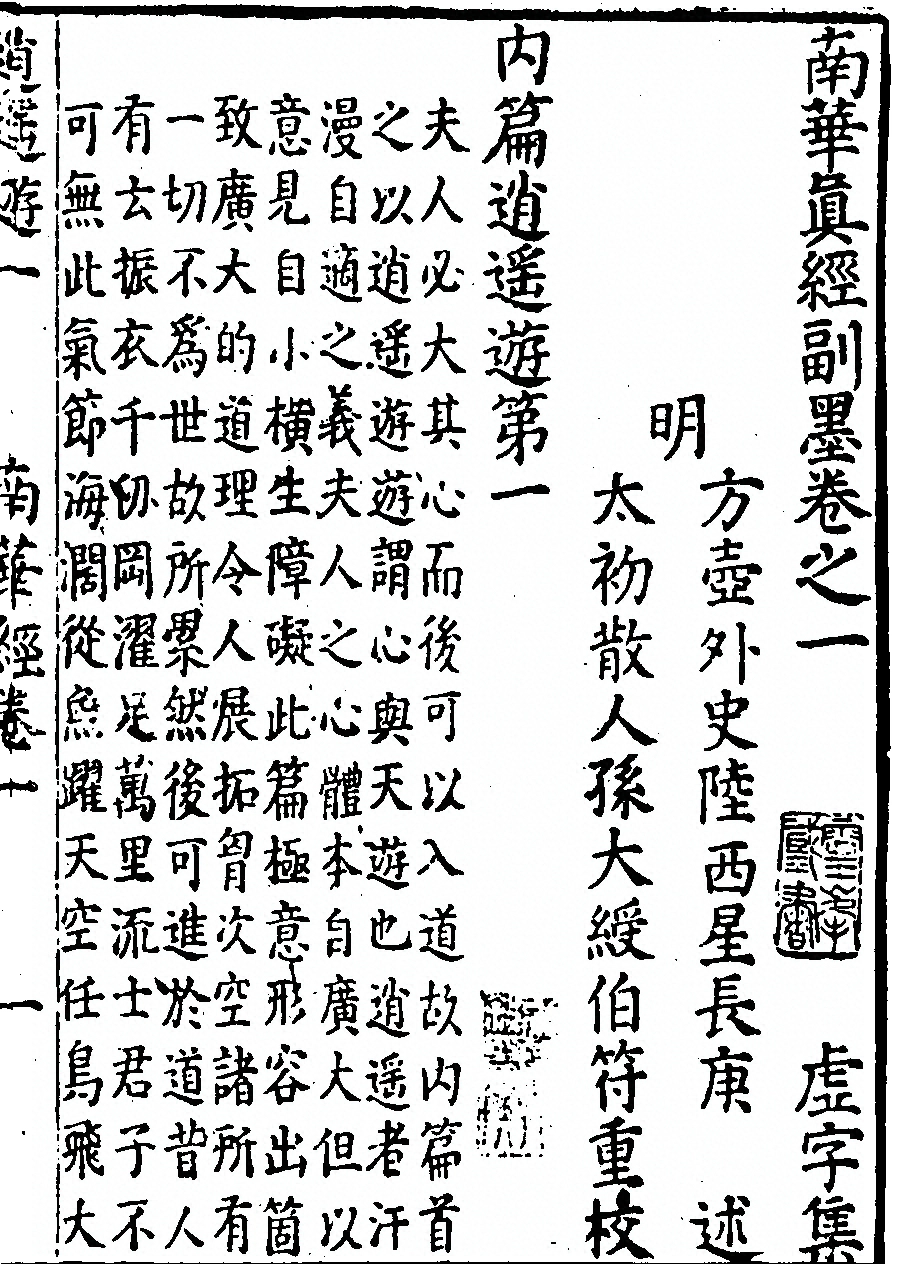 南華眞經副墨卷之一　虛字集
明
方壺外史陸西星長庚　述
太初散人孫大綬伯符重校
内篇逍遙遊第一
夫人必大其心而後可以入道故内篇首
之以逍遥遊遊謂心與天遊也逍遥者汗
漫自適之義夫人之心體本自廣大但以
意見自小橫生障礙此篇極意形容出箇
致廣大的道理令人展拓胷次空諸所有
一切不爲世故所累然後可進於道昔人
有云振衣千仞岡濯足萬里流士君子不
可無此氣節海濶從魚躍天空任鳥飛大
逍遥遊一　南華經卷一　一